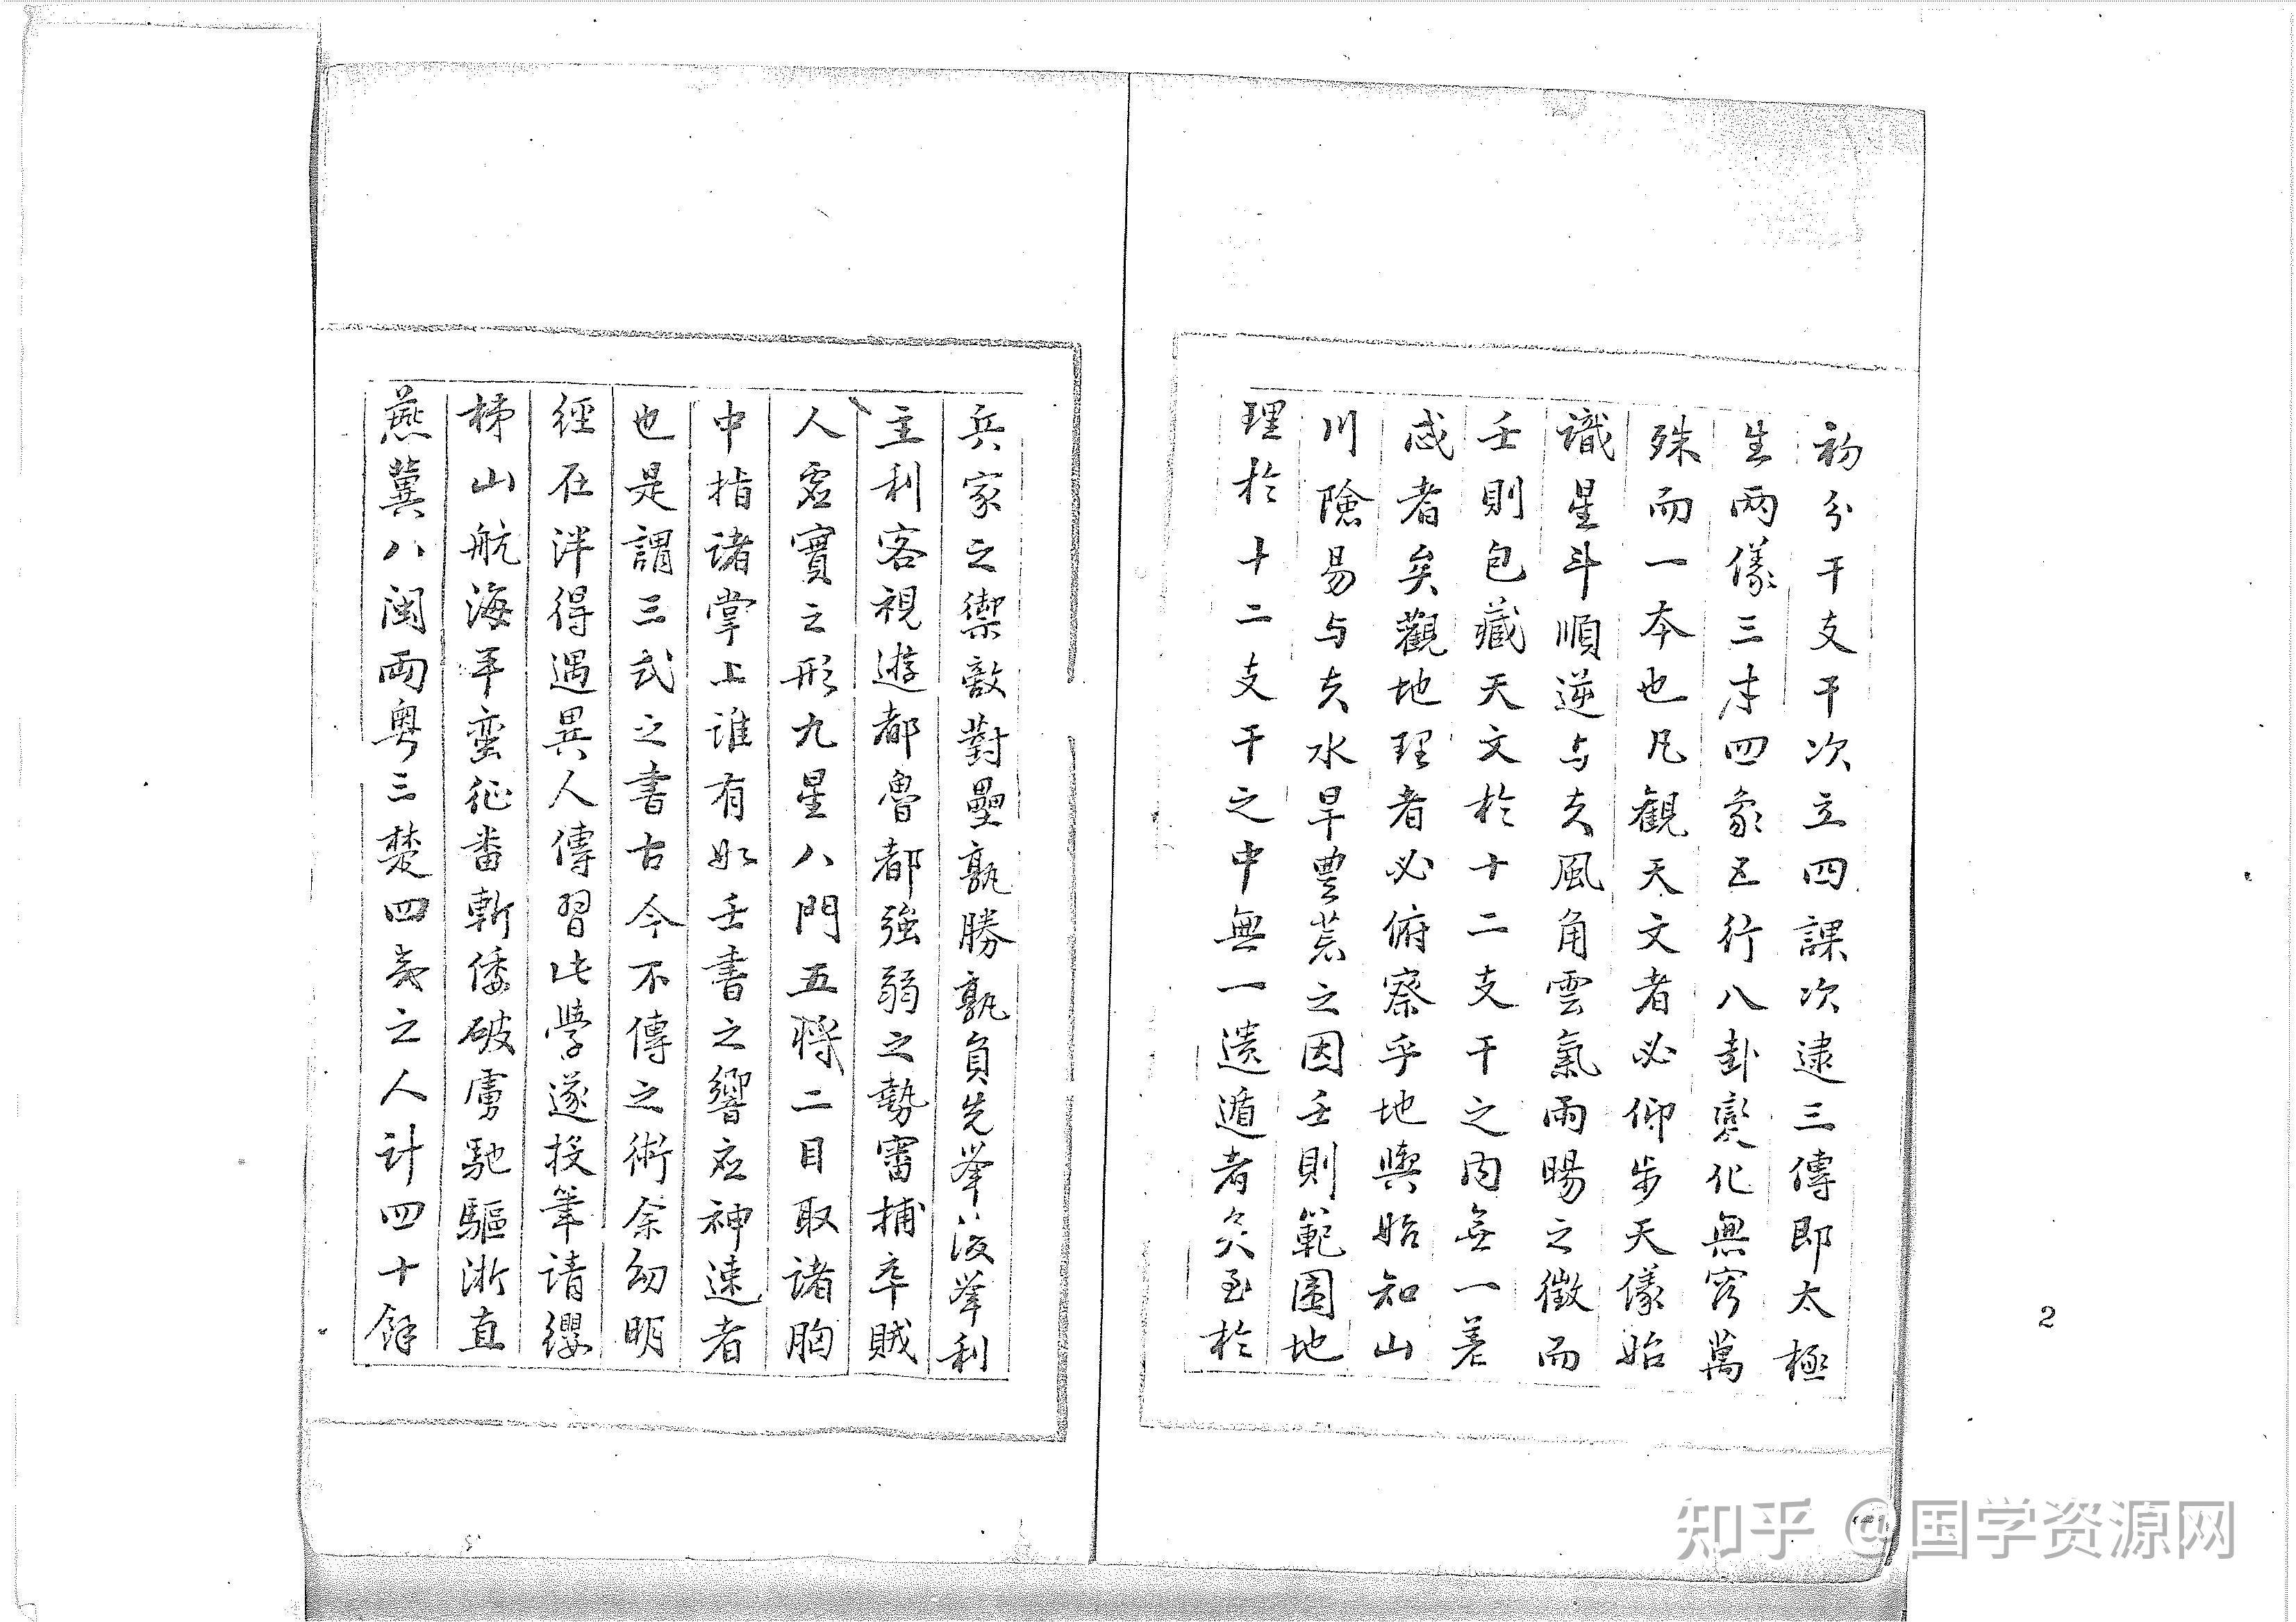 初分干支干次立四課次逮三傳即太極
生兩儀三才四象五行八卦變化無窮萬
殊而一本也凡觀天文者必仰步天儀始
識星斗順逆与夫風角雲氣雨暘之徵而
壬則包藏天文於十二支干之内無一差
忒者矣觀地理者必俯察乎地輿始知山
川險易与夫水旱豊荒之因壬則範圍地
理於十二支干之中無一遗遁者矣至於
兵家之禦敵對壘孰勝孰負先举後举利
主利客視遊都魯都強弱之勢審捕卒賊
人虚實之形九星八門五將二目取诸胸
中指诸掌上谁有如壬書之響应神速者
也是謂三式之書古今不傳之術余幼明
經在泮得遇異人傳習此學遂投筆请纓
梯山航海平蛮征番斬倭破虜馳驅淅直
燕冀八闽兩粤三楚四夷之人计四十餘
2
知乎 @国学资源网